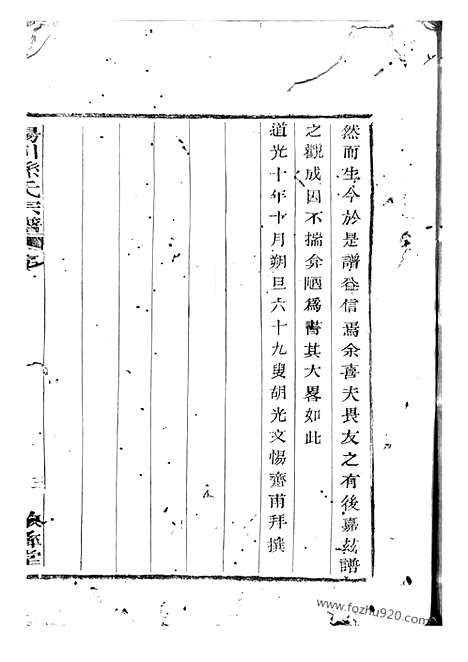 然而生今於是譜益信焉余喜夫畏友之有後嘉茲譜
之觀成因不揣弇陋爲書其大畧如此
道光十年十月朔旦六十九叟胡光文惕齋甫拜撰
川孫氏宗譜
序
三
堂
www.fozhu920.com